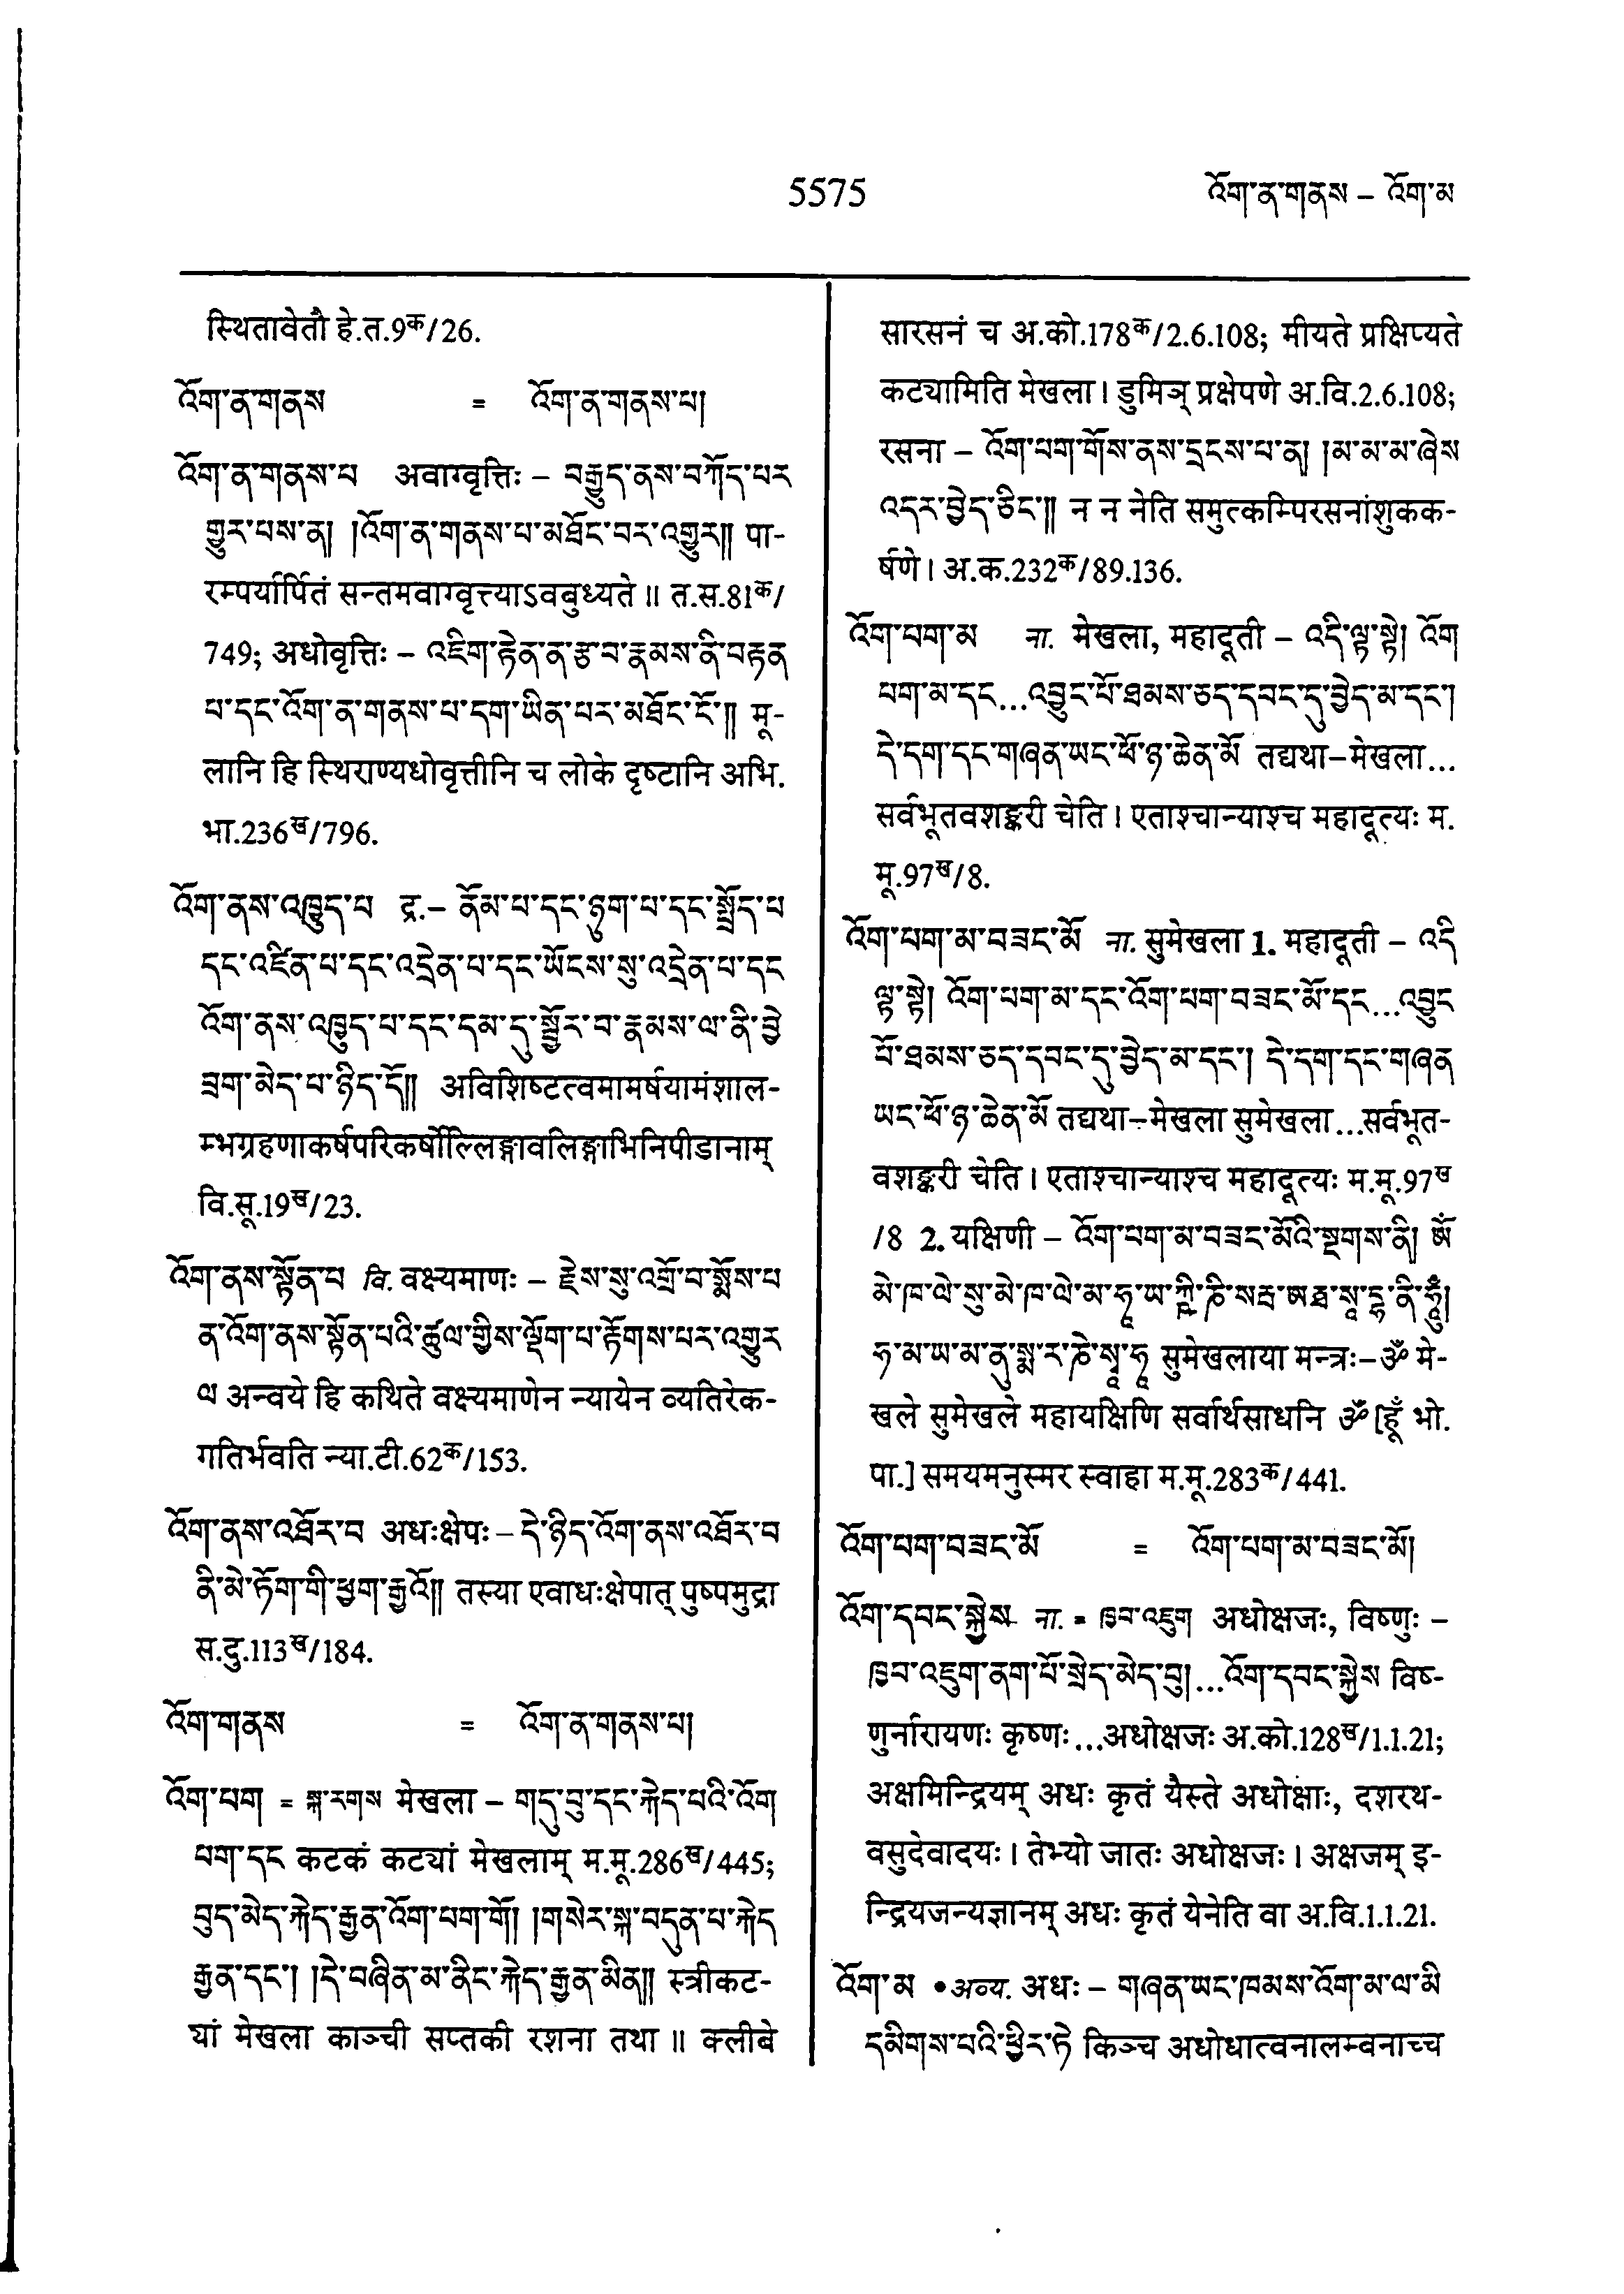 5575
འོག་ན་གནས – འོག་མ
स्थितावेतौ हे.त.9क/26.
འོག་ན་གནས = འོག་ན་གནས་པ།
འོག་ན་གནས་པ अवाग्वृत्तिः – བརྒྱུད་ནས་བཀོད་པར
གྱུར་པས་ན། །འོག་ན་གནས་པ་མཐོང་བར་འགྱུར།། पा-
रम्पर्यार्पितं सन्तमवाग्वृत्त्याऽवबुध्यते ॥ त.स.81क/
749; अधोवृत्तिः – འཇིག་རྟེན་ན་རྩ་བ་རྣམས་ནི་བརྟན
པ་དང་འོག་ན་གནས་པ་དག་ཡིན་པར་མཐོང་ངོ་།། मू-
लानि हि स्थिराण्यधोवृत्तीनि च लोके दृष्टानि अभि.
भा.236ख/796.
འོག་ནས་འཁྱུད་པ द्र.– ནོམ་པ་དང་ཉུག་པ་དང་སློད་པ
དང་འཛིན་པ་དང་འདྲེན་པ་དང་ཡོངས་སུ་འདྲེན་པ་དང
འོག་ནས་འཁྱུད་པ་དང་དམ་དུ་སྦྱོར་བ་རྣམས་ལ་ནི་བྱེ
བྲག་མེད་པ་ཉིད་དོ།། अविशिष्टत्वमामर्षयामंशाल-
म्भग्रहणाकर्षपरिकर्षोल्लिङ्गावलिङ्गाभिनिपीडानाम्
वि.सू.19ख/23.
འོག་ནས་སྟོན་པ वि. वक्ष्यमाणः – རྗེས་སུ་འགྲོ་བ་སྨོས་པ
ན་འོག་ནས་སྟོན་པའི་ཚུལ་གྱིས་ལྡོག་པ་རྟོགས་པར་འགྱུར
ལ अन्वये हि कथिते वक्ष्यमाणेन न्यायेन व्यतिरेक-
गतिर्भवति न्या.टी.62क/153.
འོག་ནས་འཐོར་བ अधःक्षेपः – དེ་ཉིད་འོག་ནས་འཐོར་བ
ནི་མེ་ཏོག་གི་ཕྱག་རྒྱའོ།། तस्या एवाधःक्षेपात् पुष्पमुद्रा
स.दु.113ख/184.
འོག་གནས = འོག་ན་གནས་པ།
འོག་པག = སྐ་རགས मेखला – གདུ་བུ་དང་རྐེད་པའི་འོག
པག་དང कटकं कट्यां मेखलाम् म.मू.286ख/445;
བུད་མེད་རྐེད་རྒྱན་འོག་པག་གོ། །གསེར་སྐ་བདུན་པ་རྐེད
རྒྱན་དང་། །དེ་བཞིན་མ་ནིང་རྐེད་རྒྱན་མིན།། स्त्रीकट-
यां मेखला काञ्ची सप्तकी रशना तथा ॥ क्लीबे
सारसनं च अ.को.178क/2.6.108; मीयते प्रक्षिप्यते
कट्यामिति मेखला। डुमिञ् प्रक्षेपणे अ.वि.2.6.108;
रसना – འོག་པག་གོས་ནས་དྲངས་པ་ན། །མ་མ་མ་ཞེས
འདར་བྱེད་ཅིང་།། न न नेति समुत्कम्पिरसनांशुकक-
र्षणे। अ.क.232क/89.136.
འོག་པག་མ ना. मेखला, महादूती – འདི་ལྟ་སྟེ། འོག
པག་མ་དང...འབྱུང་པོ་ཐམས་ཅད་དབང་དུ་བྱེད་མ་དང་།
དེ་དག་དང་གཞན་ཡང་ཕོ་ཉ་ཆེན་མོ तद्यथा–मेखला...
सर्वभूतवशङ्करी चेति। एताश्चान्याश्च महादूत्यः म.
मू.97ख/8.
འོག་པག་མ་བཟང་མོ ना. सुमेखला 1. महादूती – འདི
ལྟ་སྟེ། འོག་པག་མ་དང་འོག་པག་བཟང་མོ་དང...འབྱུང
པོ་ཐམས་ཅད་དབང་དུ་བྱེད་མ་དང་། དེ་དག་དང་གཞན
ཡང་ཕོ་ཉ་ཆེན་མོ तद्यथा–मेखला सुमेखला...सर्वभूत-
वशङ्करी चेति। एताश्चान्याश्च महादूत्यः म.मू.97ख
/8 2. यक्षिणी – འོག་པག་མ་བཟང་མོའི་སྔགས་ནི། ཨོཾ
མེ་ཁ་ལེ་སུ་མེ་ཁ་ལེ་མ་ཧཱ་ཡ་ཀྵི་ཎི་སརྦ་ཨརྠ་སཱ་དྷ་ནི་ཧཱུྃ།
ཧ་མ་ཡ་མ་ནུ་སྨ་ར་ཎེ་སྭཱ་ཧཱ सुमेखलाया मन्त्रः–ॐ मे-
खले सुमेखले महायक्षिणि सर्वार्थसाधनि ॐ [हूँ भो.
पा.] समयमनुस्मर स्वाहा म.मू.283क/441.
འོག་པག་བཟང་མོ = འོག་པག་མ་བཟང་མོ།
འོག་དབང་སྐྱེས ना. = ཁྱབ་འཇུག अधोक्षजः, विष्णुः –
ཁྱབ་འཇུག་ནག་པོ་སྲེད་མེད་བུ།...འོག་དབང་སྐྱེས विष-
णुर्नारायणः कृष्णः...अधोक्षजः अ.को.128ख/1.1.21;
अक्षमिन्द्रियम् अधः कृतं यैस्ते अधोक्षाः, दशरथ-
वसुदेवादयः। तेभ्यो जातः अधोक्षजः। अक्षजम् इ-
न्द्रियजन्यज्ञानम् अधः कृतं येनेति वा अ.वि.1.1.21.
འོག་མ •अव्य. अधः – གཞན་ཡང་ཁམས་འོག་མ་ལ་མི
དམིགས་པའི་ཕྱིར་ཏེ किञ्च अधोधात्वनालम्वनाच्च